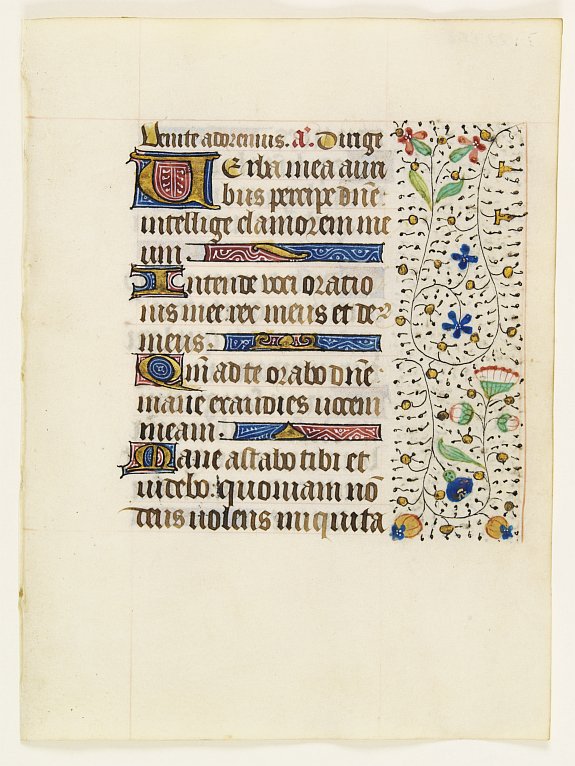 Venite adoremus. a. Dirige
Verba mea auri
bus percipe dñe
intellige clamorem me
um.
Intende voci oratio
nis mee rex meus et de⁹
meus.
Qm̃ ad te orabo dñe
mane exaudies uocem
meam.
Mane astabo tibi et
uidebo: quoniam nõ
deus uolens iniquita